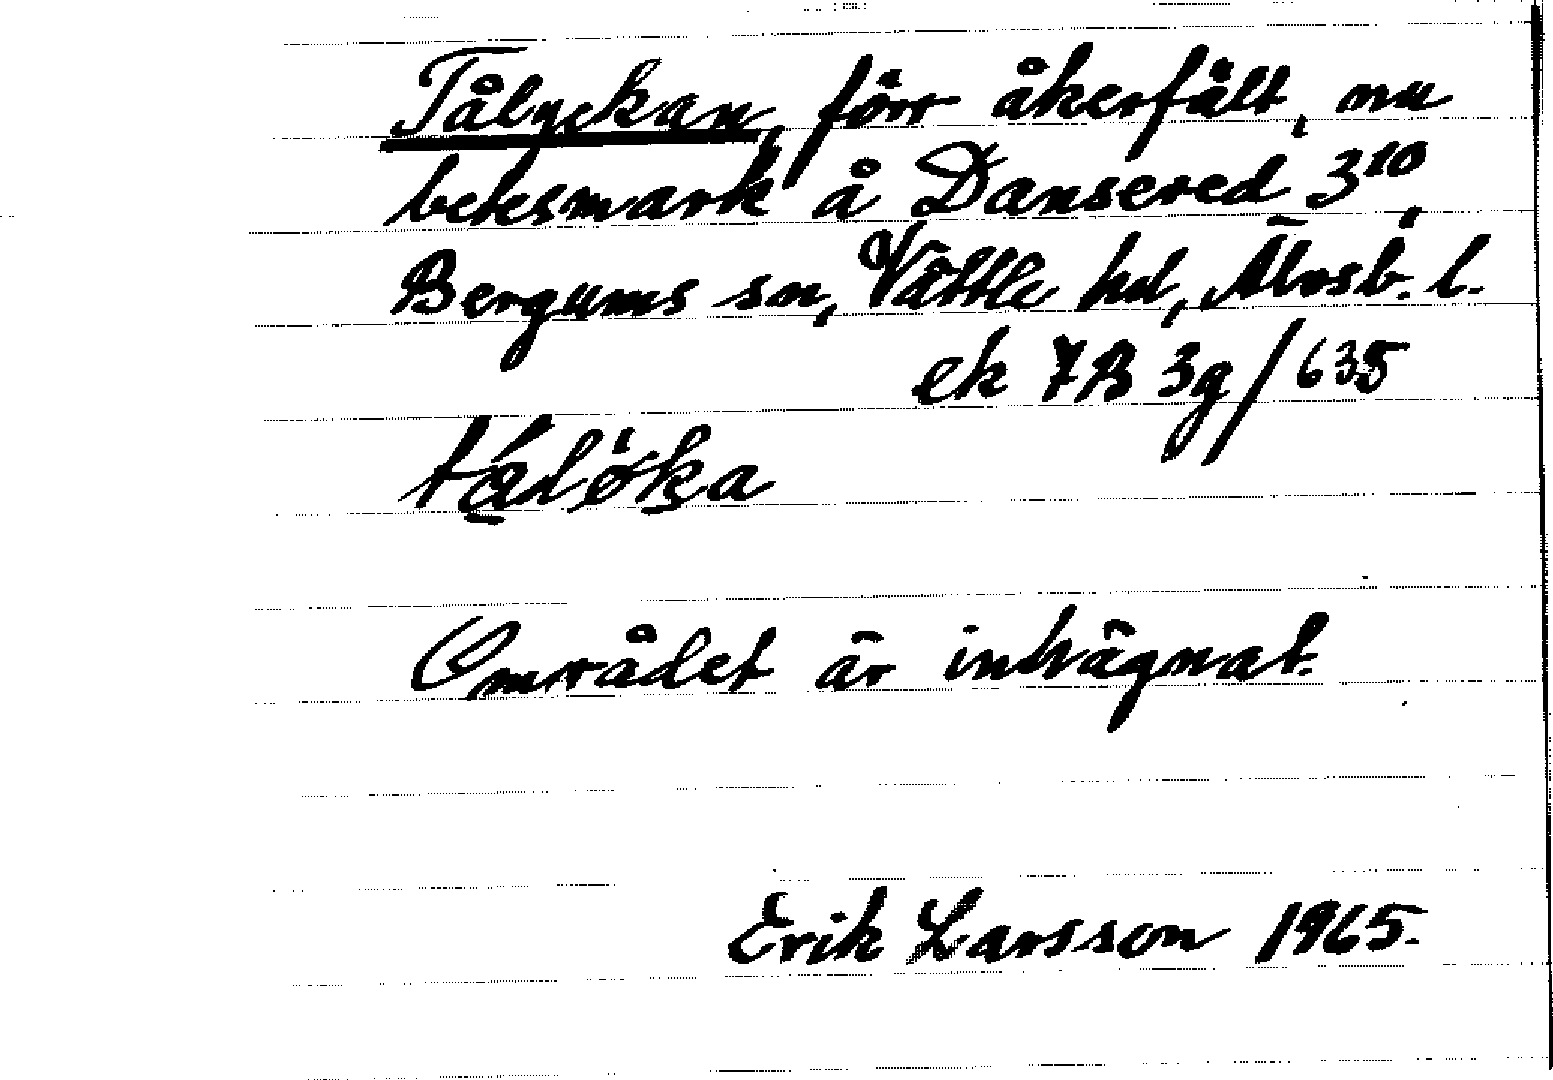 Tålyckan, förr åkerfält, nu
betesmark å Dansered 3¹⁰,
Bergums sn, Vättle hd, Älvsb. l.
ek 7B 3g/635
Området är inhägnat.
Erik Larsson 1965.